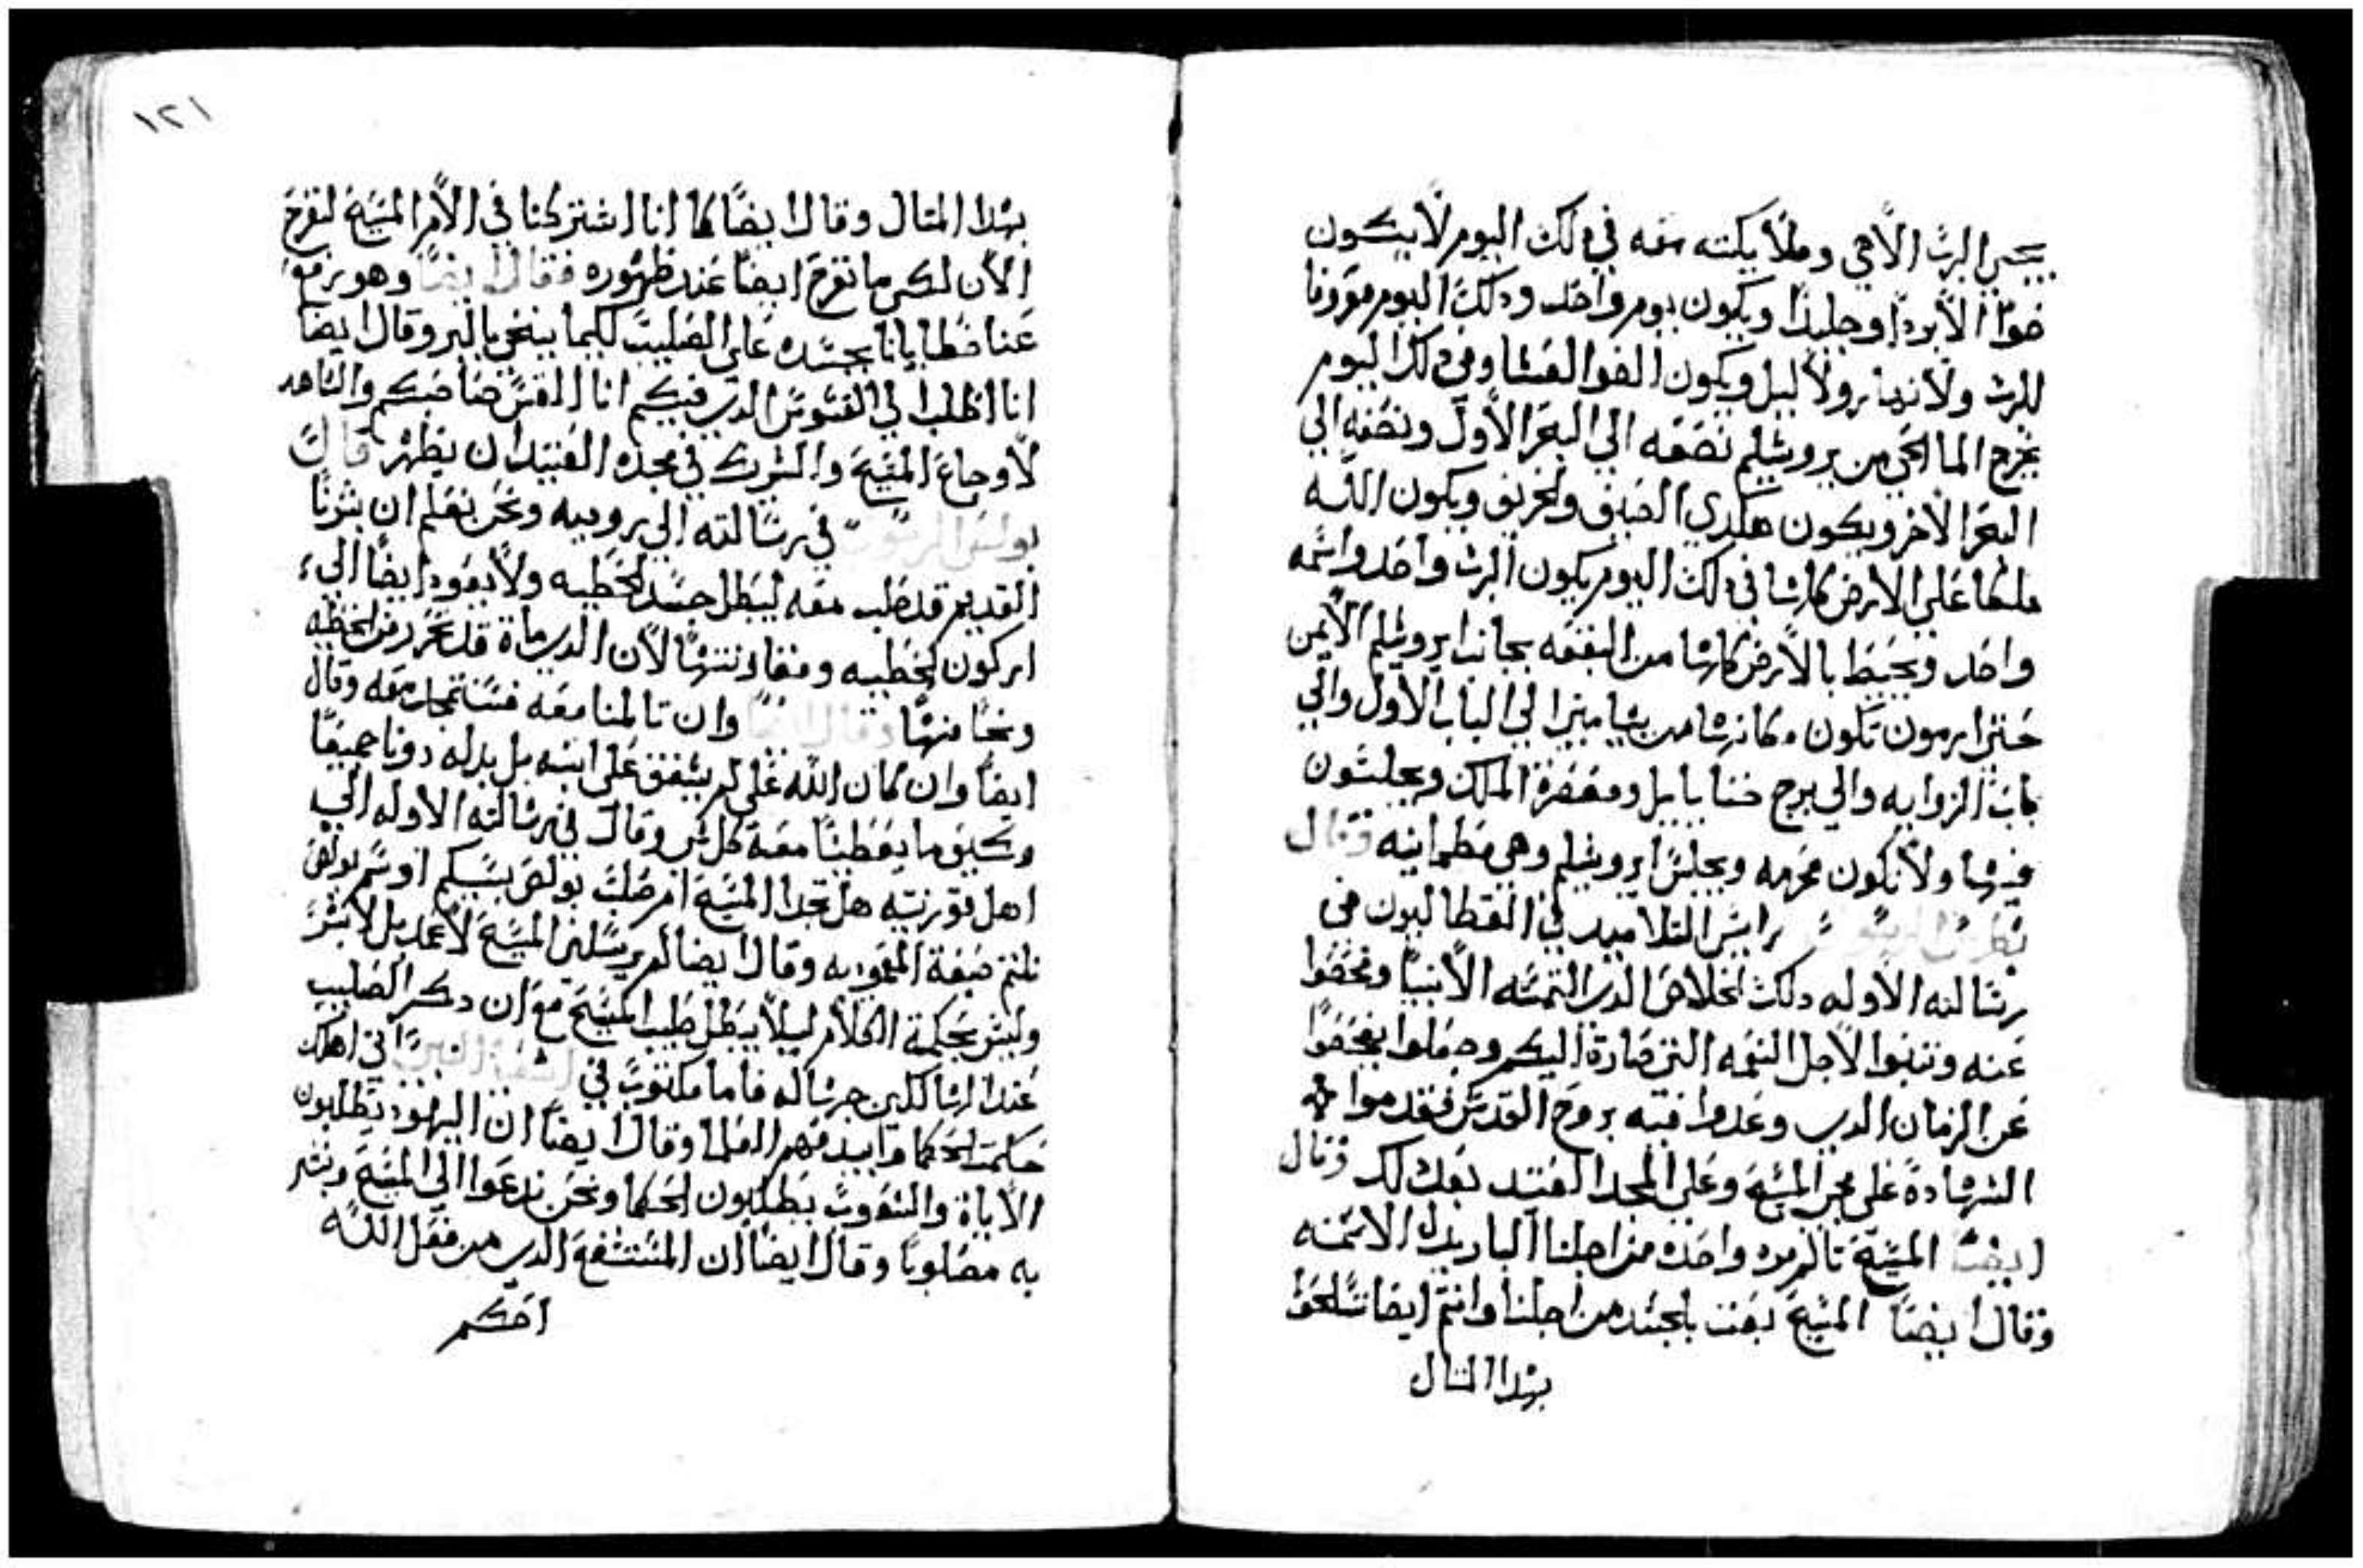 يجي الرب الاهي وملايكته معه في دلك اليوم لايكون
ضوّا الا بردًا وجليدًا ويكون يوم واحد ودلك اليوم معروفا
للرب ولا نهار ولا ليل ويكون الضوا العشا وفي دلك اليوم
يخرج الما الحي من يروشليم نصفه الي البحر الاول ونصفه الي
البحر الاخر ويكون هكدي الصيف والخريف ويكون الله
ملكا علي الارض كلها في دلك اليوم يكون الرب واحد واسمه
واحد ويحيط بالارض كلها من البقعه بجانب ايروشليم الايمن
حتي ارمون تكون مكانها من بنيامين الي الباب الاول والي
باب الزوايه والي برج حننا ياييل ومعصرة الملك ويجلسون
فيها ولا تكون محرمه ويجلس ايروشليم وهي مطمانيه وقال
بطرس راييس التلاميد في القطاليون في
رسالته الاوله دلك الخلاص الدي التمسه الانبيا وفحصوا
عنه وتنبوا لاجل النعمه التي صارة اليكم وجعلوا يفحصوا
عن الزمان الدي وعدوا فيه بروح القدس فتقدموا
الشهادة علي المسيح وعلي المجد العتيد بعد دلك وقال
ايضًا المسيح تالم مره واحده من اجلنا البار بدل الاتمه
وقال ايضًا المسيح بعت بالجسد من اجلنا وانتم ايضا تسلحوا
بهدا المتال
١٢١
بهدا المتال وقال ايضًا كما اننا اشتركنا في الام المسيح لنفرح
الان لكي ما نفرح ايضًا عند ظهوره فقال ايضًا وهو رفع
عنا خطايانا بجسده علي الصليب لكيما ينجي بالبر وقال ايضا
انا اطلب الي القسوس الدي فيكم انا القس صاحبكم والشاهد
لاوجاع المسيح والشريك في مجده العتيد ان يظهر قال
بولس الرسول في رسالته الي روميه ونحن نعلم ان بشرنا
القديم قد صلب معه ليبطل جسد الخطيه ولا يعود ايضًا الي
اركون الخطيه لان الدي ماة قد تحرر من الخطيه
ونجا منها وقال ايضًا وان تالمنا معه فسنتمجد معه وقال
ايضًا وان كان الله علي لم يشفق علي ابنه بل بدله دوننا جميعًا
وكيف ما يعطينا معه كل شي وقال في رسالته الاوله الي
اهل قورنتيه هل تجدا المسيح ام صلب بولص بسببكم او بسم بولص
نلتم صبغة المعموديه وقال ايضا لم يرسلني المسيح لاعمد بل لابشر
وليس بحكمة الكلام ليلا يبطل صليب المسيح مع ان دكر الصليب
عند الهالكين جهاله فاما مكتوب في اشعيا النبي اني اهلك
حكمت الحكما وابيد فهم العلما وقال ايضًا ان اليهود يطلبون
الاياة والشعوب يطلبون الحكما ونحن ندعوا الي المسيح ونبشر
به مصلوبًا وقال ايضًا ان المستشفع الدي من قبل الله
احكم